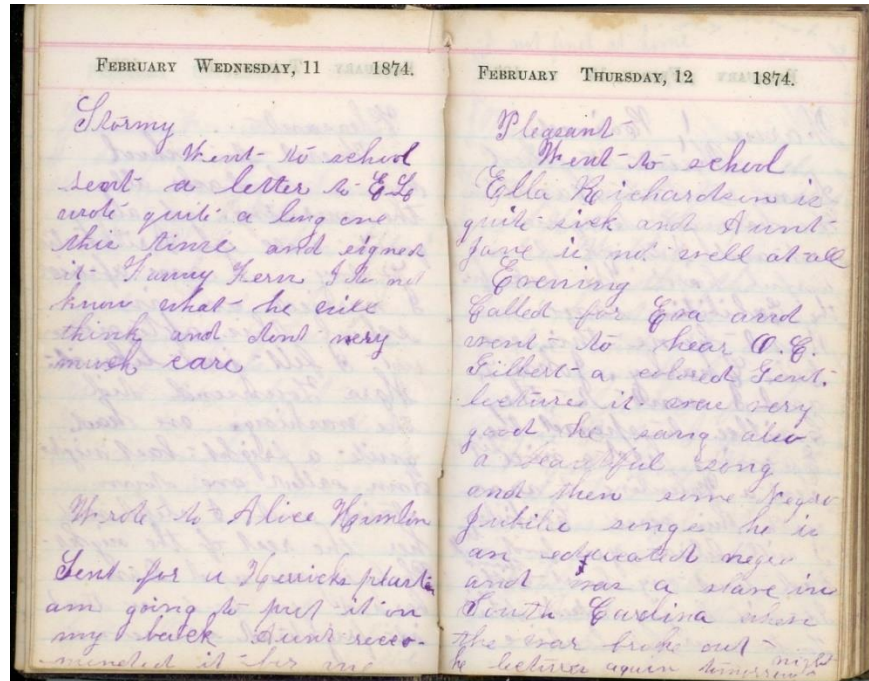 FEBRUARY WEDNESDAY, 11 1874.
Stormy
Went to school
sent a letter to E L
wrote quite a long one
this time and signed
it Fanny Fern I do not
know what he will
think and dont very
much care
Wrote to Alice Hamlin
Sent for a Herricks plaster
am going to put it on
my back Aunt recco-
mended it for me
FEBRUARY THURSDAY, 12 1874.
Pleasant
Went to school
Ella Richardson is
quite sick and Aunt
Jane is not well at all
Evening
Called for Eva and
went to hear O. C.
Gilbert a colored Gent.
lecture it was very
good he sang also
a beautiful song
and then some Negro
Jubilie songs he is
an educated negro
and was a slave in
South Carolina when
the war broke out
he lectures again tomorrow night